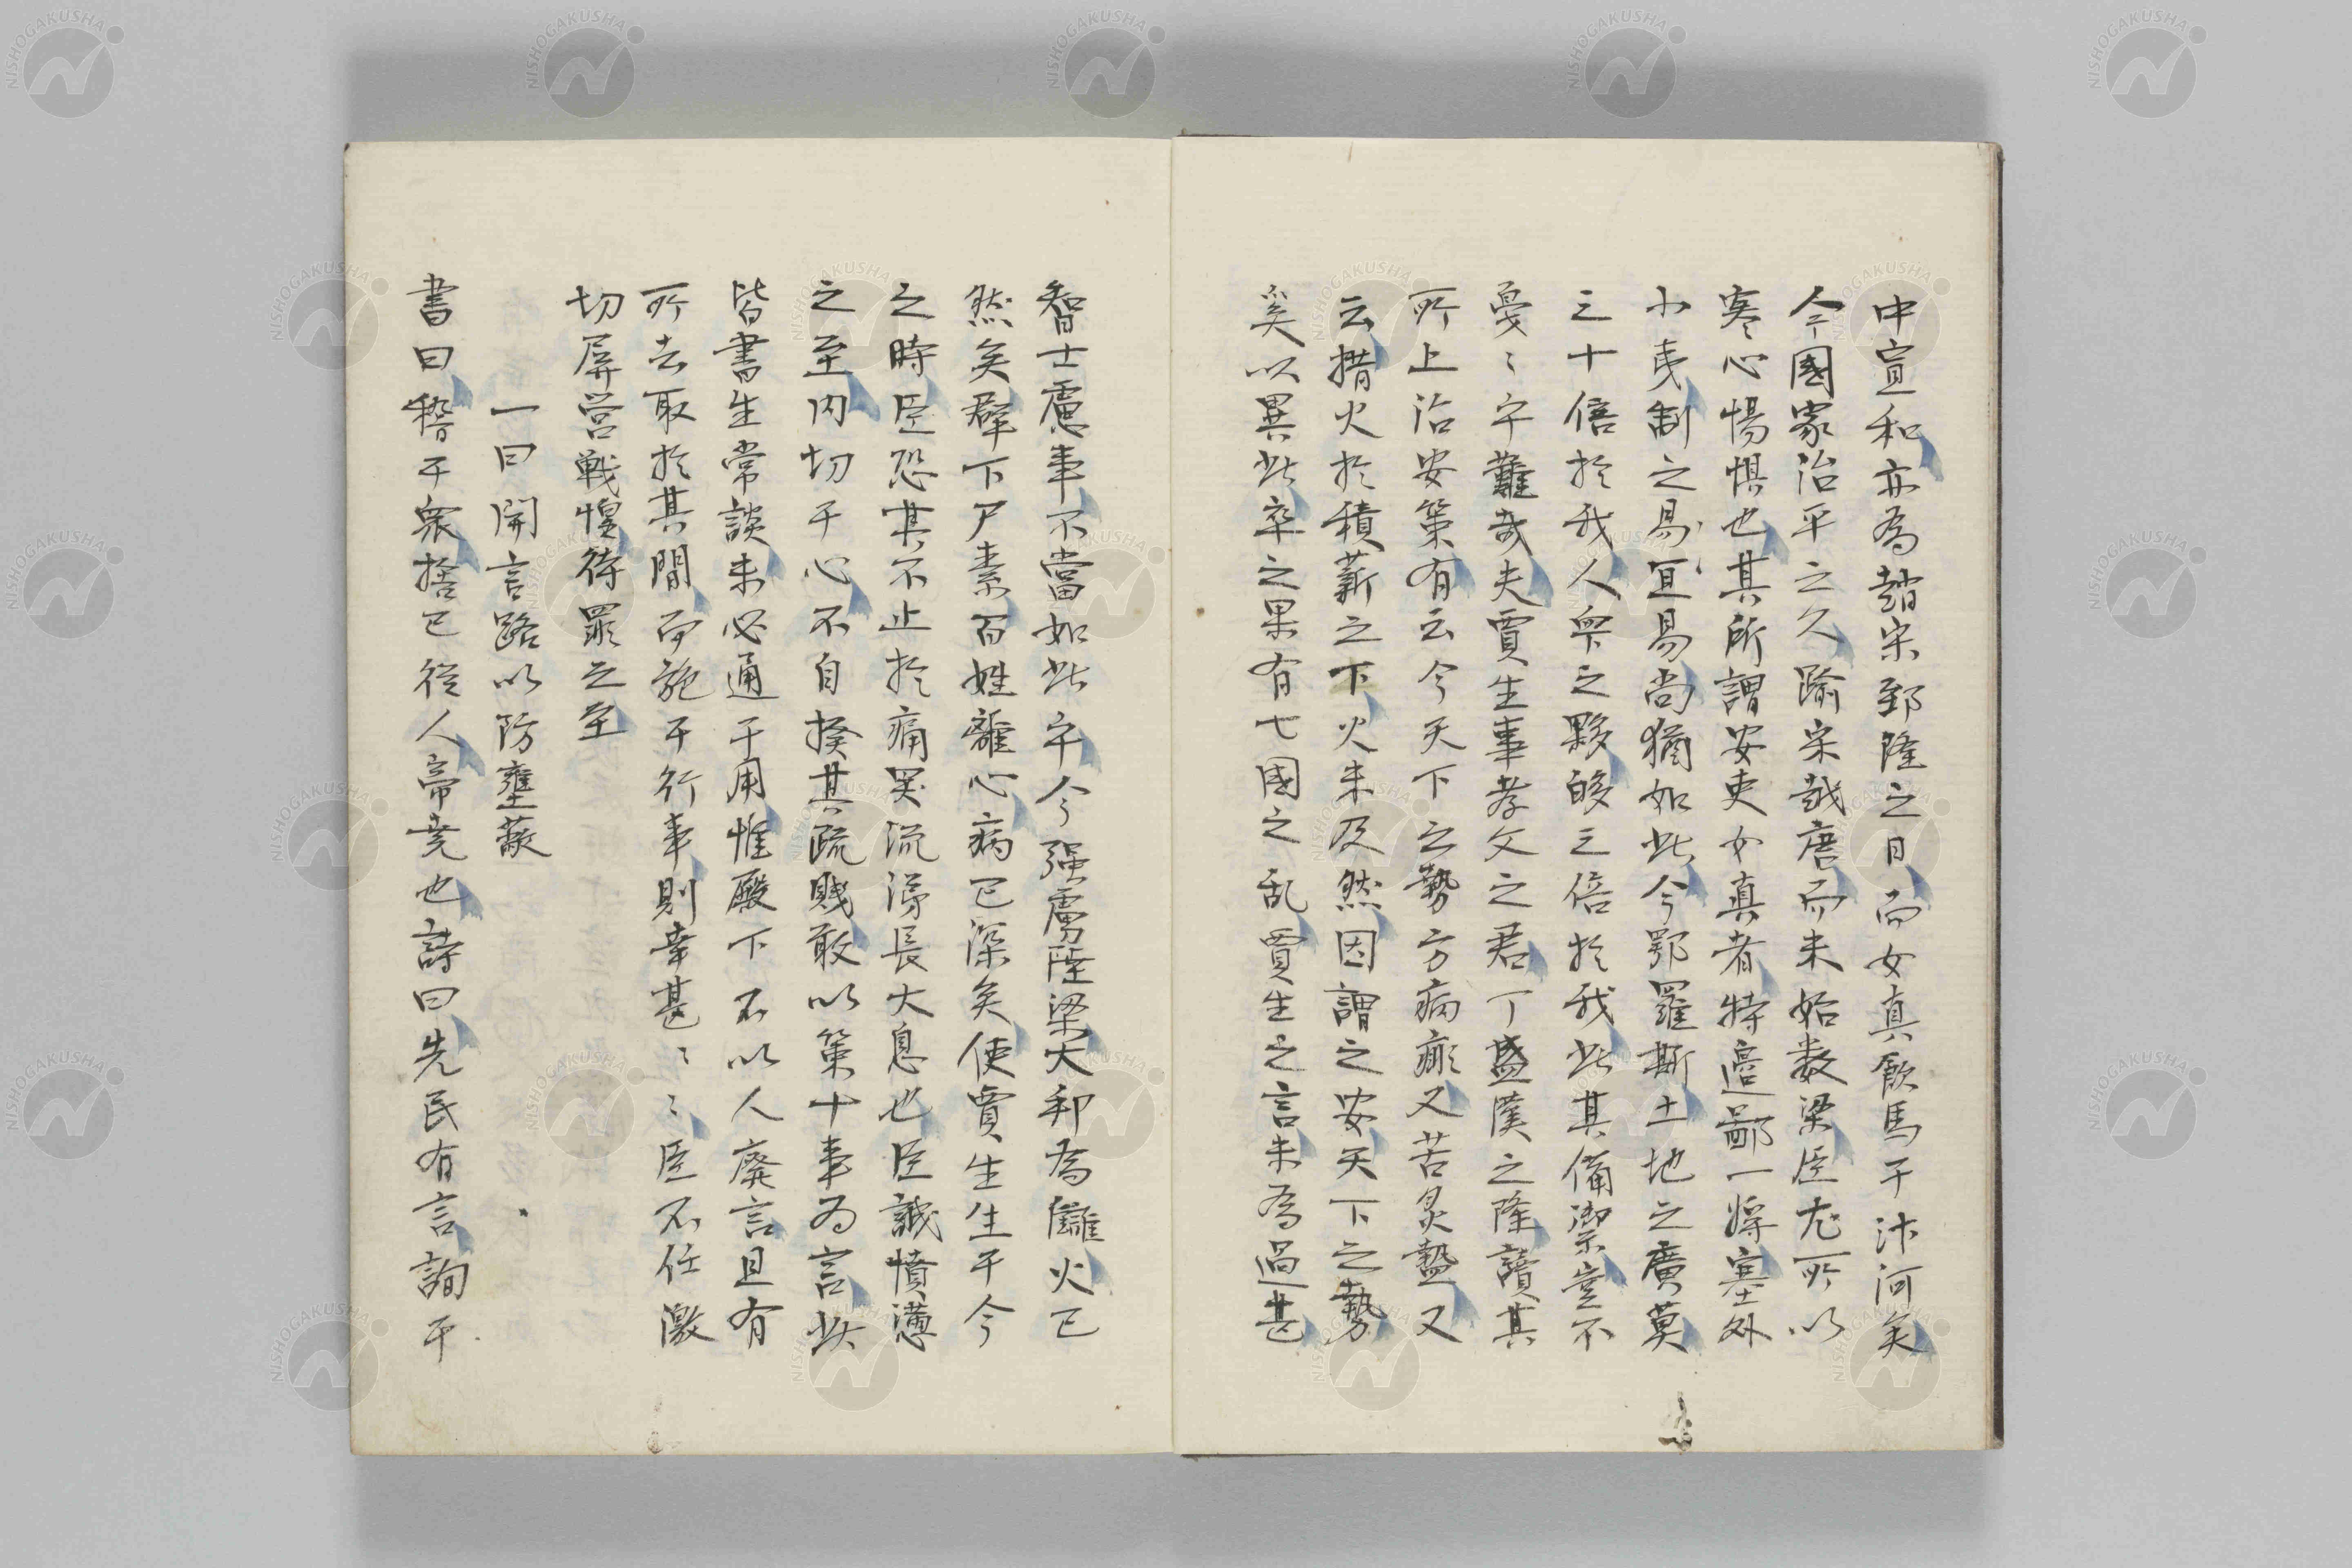 中宣和亦為趙宋郅隆之日而女真飲馬于汴河矣
今國家治平之久踰宋哉唐而未始數梁臣尤所以
寒心惕惧也其所謂安吏女真者特邉鄙一將塞外
小夷制之易宜易尚猶如此今鄂羅斯土地之廣莫
三十倍於我人衆之夥够三倍於我此其備禦豈不
憂〻乎難哉夫賈生事孝文之君丁盛漢之隆讀其
所上治安策有云今天下之勢方病瘇又苦炙盭又
云措火於積薪之下火未及然因謂之安天下之勢
奚以異此卒之果有七國之乱賈生之言未為過甚
智士慮事不當如此乎今强虜陸梁大邦為讎火已
然矣羣下尸素百姓離心病已深矣使賈生生于今
之時臣恐其不止於痛哭流涕長大息也臣誠憤懣
之至内切于心不自揆其疏賤敢以策十事為言此
皆書生常談未必通于用惟殿下不以人廢言且有
所去取於其間而施于行事則幸甚〻〻臣不任激
切屏営戦惶待罪之至
一曰開言路以防壅蔽
書曰稽于衆捨已從人帝堯也詩曰先民有言詢于
NISHOGAKUSHA